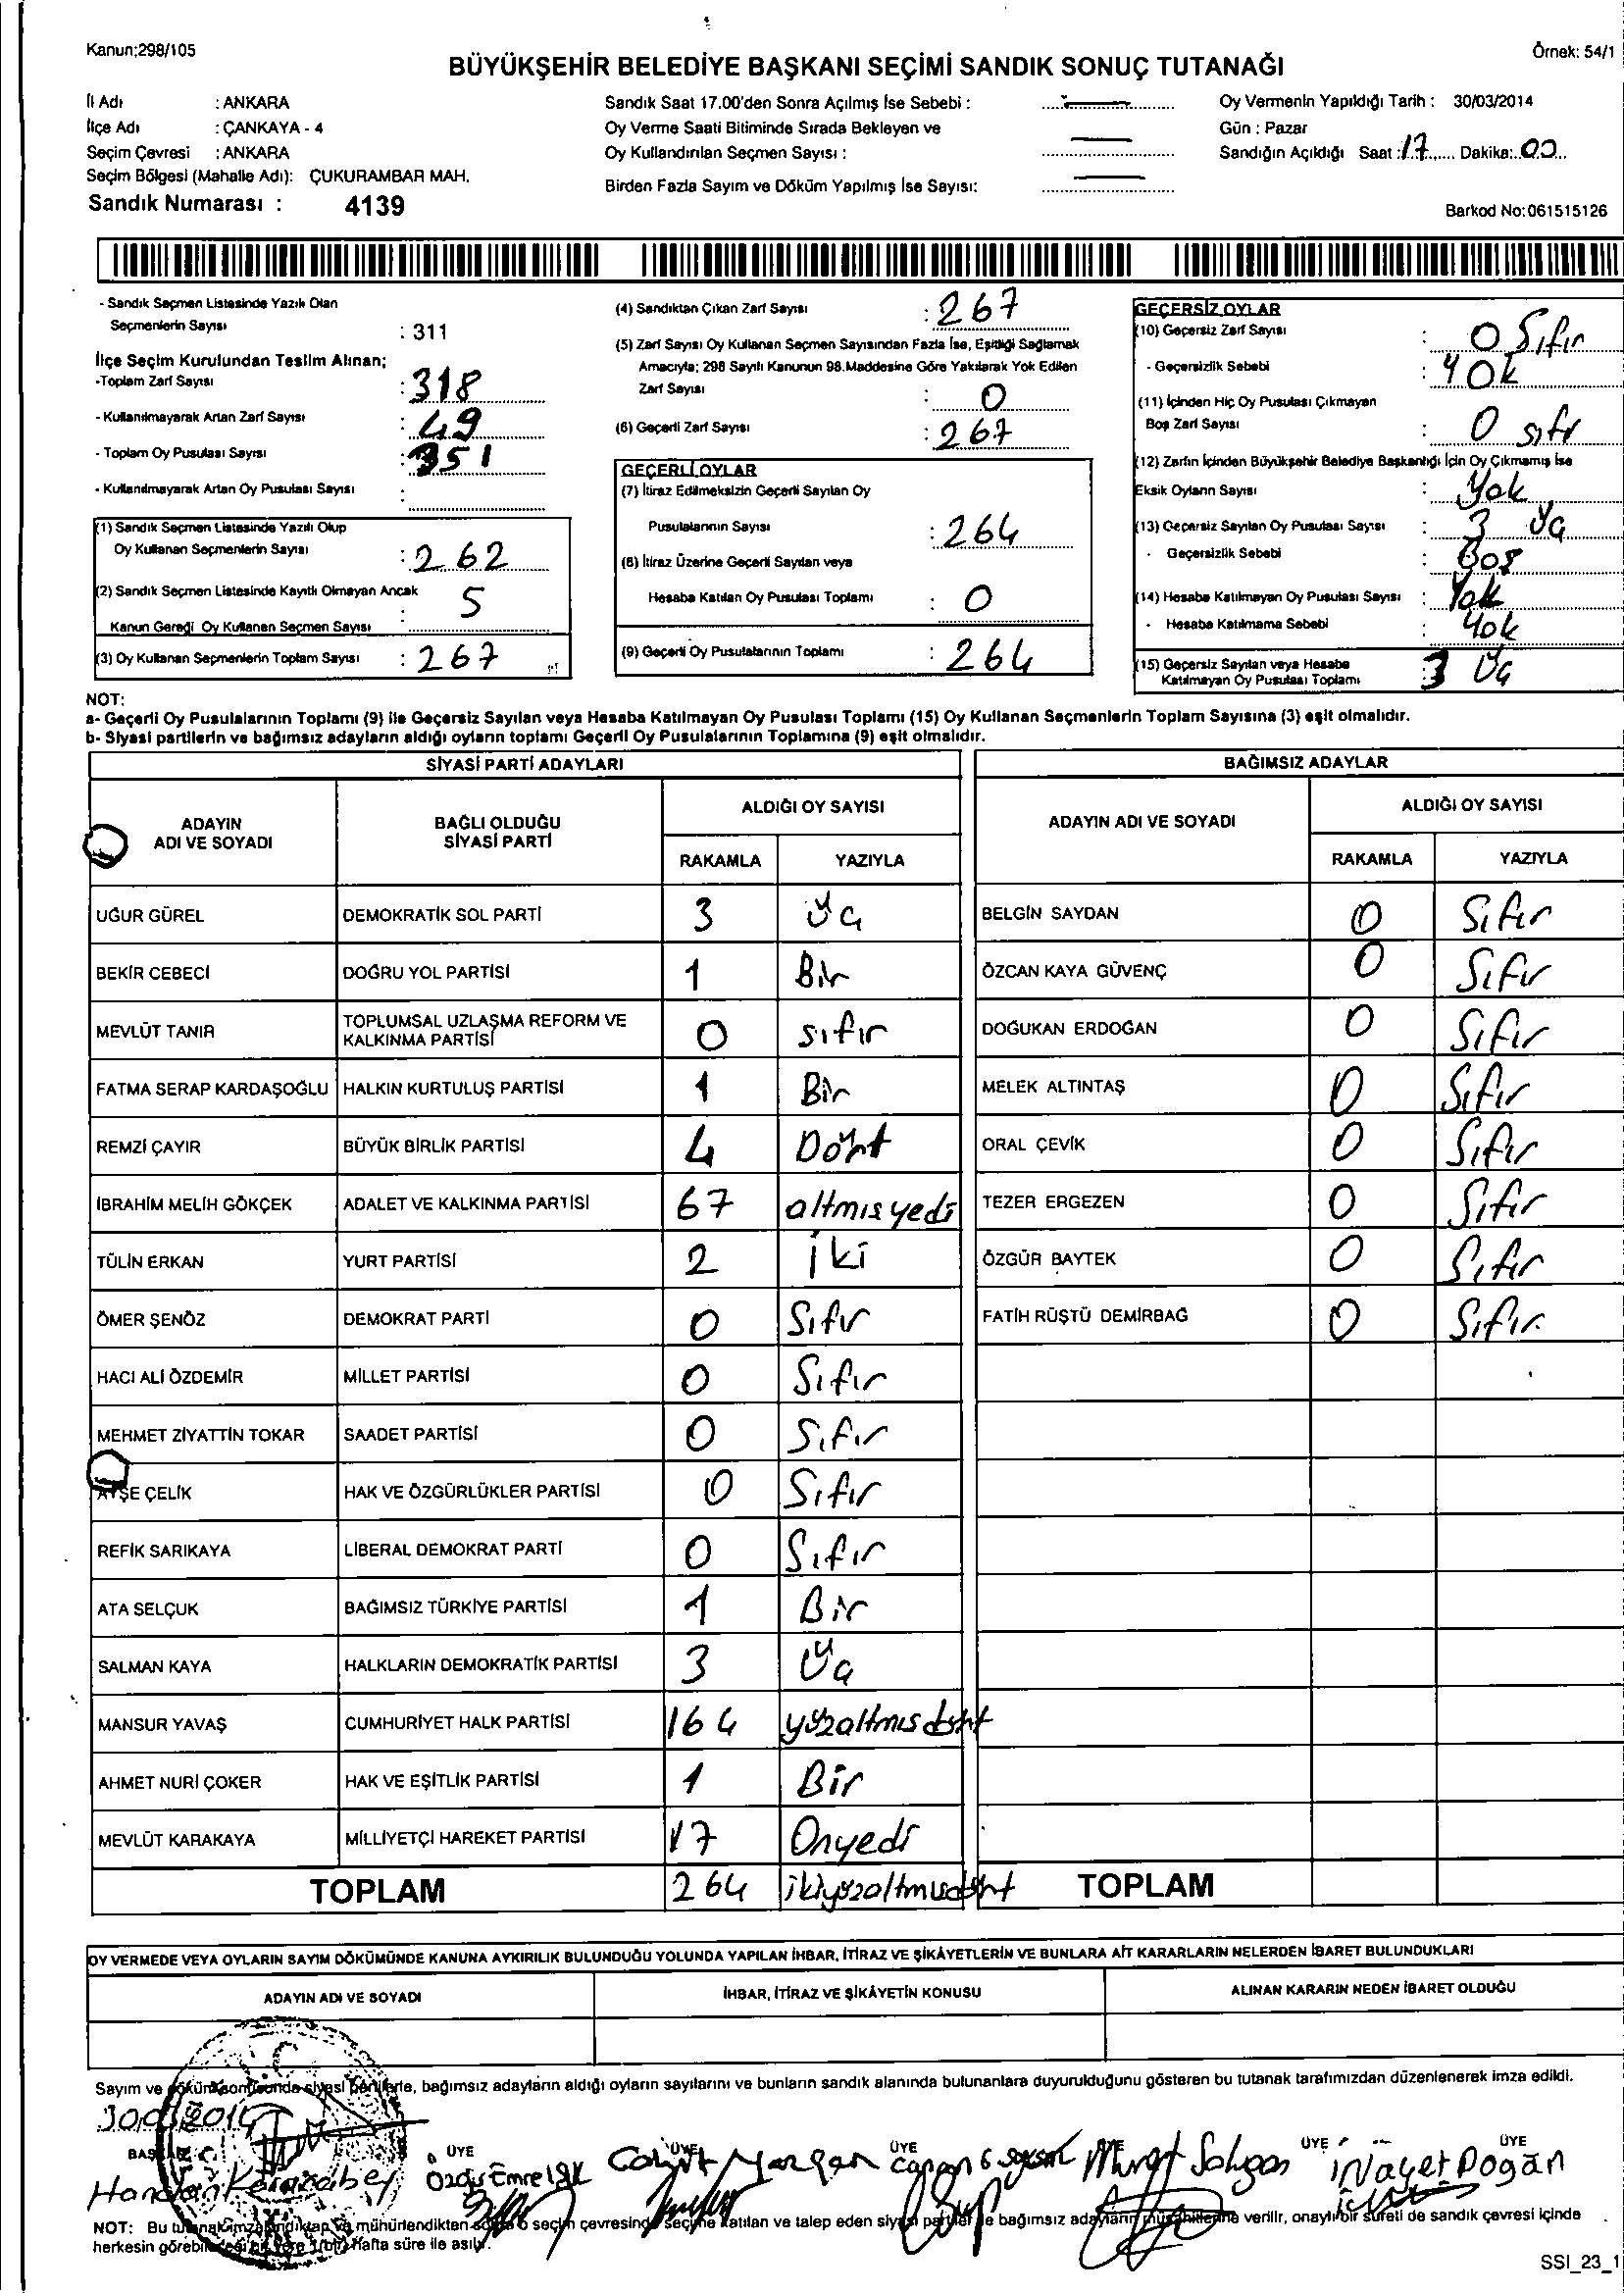 Kanun;298/105
Örnek: 54/1
BÜYÜKŞEHİR BELEDİYE BAŞKANI SEÇİMİ SANDIK SONUÇ TUTANAĞI
İl Adı : ANKARA
İlçe Adı : ÇANKAYA - 4
Seçim Çevresi : ANKARA
Seçim Bölgesi (Mahalle Adı): ÇUKURAMBAR MAH.
Sandık Numarası : 4139
Sandık Saat 17.00'den Sonra Açılmış İse Sebebi :
Oy Verme Saati Bitiminde Sırada Bekleyen ve
Oy Kullandırılan Seçmen Sayısı :
Birden Fazla Sayım ve Döküm Yapılmış İse Sayısı:
Oy Vermenin Yapıldığı Tarih : 30/03/2014
Gün : Pazar
Sandığın Açıldığı Saat : 17 Dakika: 00
Barkod No:061515126
- Sandık Seçmen Listesinde Yazılı Olan
Seçmenlerin Sayısı : 311
İlçe Seçim Kurulundan Teslim Alınan;
-Toplam Zarf Sayısı : 318
- Kullanılmayarak Artan Zarf Sayısı : 49
- Toplam Oy Pusulası Sayısı : 351
- Kullanılmayarak Artan Oy Pusulası Sayısı :
(1) Sandık Seçmen Listesinde Yazılı Olup
Oy Kullanan Seçmenlerin Sayısı : 262
(2) Sandık Seçmen Listesinde Kayıtlı Olmayan Ancak
Kanun Gereği Oy Kullanan Seçmen Sayısı : 5
(3) Oy Kullanan Seçmenlerin Toplam Sayısı : 267
(4) Sandıktan Çıkan Zarf Sayısı : 267
(5) Zarf Sayısı Oy Kullanan Seçmen Sayısından Fazla İse, Eşitliği Sağlamak
Amacıyla; 298 Sayılı Kanunun 98.Maddesine Göre Yakılarak Yok Edilen
Zarf Sayısı : 0
(6) Geçerli Zarf Sayısı : 267
GEÇERLİ OYLAR
(7) İtiraz Edilmeksizin Geçerli Sayılan Oy
Pusulalarının Sayısı : 264
(8) İtiraz Üzerine Geçerli Sayılan veya
Hesaba Katılan Oy Pusulası Toplamı : 0
(9) Geçerli Oy Pusulalarının Toplamı : 264
GEÇERSİZ OYLAR
(10) Geçersiz Zarf Sayısı : 0 Sıfır
- Geçersizlik Sebebi : Yok
(11) İçinden Hiç Oy Pusulası Çıkmayan
Boş Zarf Sayısı : 0 sıfır
(12) Zarfın İçinden Büyükşehir Belediye Başkanlığı İçin Oy Çıkmamış İse
Eksik Oyların Sayısı : Yok
(13) Geçersiz Sayılan Oy Pusulası Sayısı : 3 Üç
- Geçersizlik Sebebi : Boş
(14) Hesaba Katılmayan Oy Pusulası Sayısı : Yok
- Hesaba Katılmama Sebebi : Yok
(15) Geçersiz Sayılan veya Hesaba
Katılmayan Oy Pusulası Toplamı : 3 Üç
NOT:
a- Geçerli Oy Pusulalarının Toplamı (9) ile Geçersiz Sayılan veya Hesaba Katılmayan Oy Pusulası Toplamı (15) Oy Kullanan Seçmenlerin Toplam Sayısına (3) eşit olmalıdır.
b- Siyasi partilerin ve bağımsız adayların aldığı oyların toplamı Geçerli Oy Pusulalarının Toplamına (9) eşit olmalıdır.
SİYASİ PARTİ ADAYLARI
BAĞIMSIZ ADAYLAR
ADAYIN ADI VE SOYADI
BAĞLI OLDUĞU SİYASİ PARTİ
ALDIĞI OY SAYISI
RAKAMLA YAZIYLA
ADAYIN ADI VE SOYADI
ALDIĞI OY SAYISI
RAKAMLA YAZIYLA
UĞUR GÜREL DEMOKRATİK SOL PARTİ 3 Üç BELGİN SAYDAN 0 Sıfır
BEKİR CEBECİ DOĞRU YOL PARTİSİ 1 Bir ÖZCAN KAYA GÜVENÇ 0 Sıfır
MEVLÜT TANIR TOPLUMSAL UZLAŞMA REFORM VE KALKINMA PARTİSİ 0 sıfır DOĞUKAN ERDOĞAN 0 Sıfır
FATMA SERAP KARDAŞOĞLU HALKIN KURTULUŞ PARTİSİ 1 Bir MELEK ALTINTAŞ 0 Sıfır
REMZİ ÇAYIR BÜYÜK BİRLİK PARTİSİ 4 Dört ORAL ÇEVİK 0 Sıfır
İBRAHİM MELİH GÖKÇEK ADALET VE KALKINMA PARTİSİ 67 altmışyedi TEZER ERGEZEN 0 Sıfır
TÜLİN ERKAN YURT PARTİSİ 2 iki ÖZGÜR BAYTEK 0 Sıfır
ÖMER ŞENÖZ DEMOKRAT PARTİ 0 Sıfır FATİH RÜŞTÜ DEMİRBAĞ 0 Sıfır
HACI ALİ ÖZDEMİR MİLLET PARTİSİ 0 Sıfır
MEHMET ZİYATTİN TOKAR SAADET PARTİSİ 0 Sıfır
AYŞE ÇELİK HAK VE ÖZGÜRLÜKLER PARTİSİ 0 Sıfır
REFİK SARIKAYA LİBERAL DEMOKRAT PARTİ 0 Sıfır
ATA SELÇUK BAĞIMSIZ TÜRKİYE PARTİSİ 1 Bir
SALMAN KAYA HALKLARIN DEMOKRATİK PARTİSİ 3 Üç
MANSUR YAVAŞ CUMHURİYET HALK PARTİSİ 164 yüzaltmışdört
AHMET NURİ ÇOKER HAK VE EŞİTLİK PARTİSİ 1 Bir
MEVLÜT KARAKAYA MİLLİYETÇİ HAREKET PARTİSİ 17 Onyedi
TOPLAM 264 ikiyüzaltmışdört TOPLAM
OY VERMEDE VEYA OYLARIN SAYIM DÖKÜMÜNDE KANUNA AYKIRILIK BULUNDUĞU YOLUNDA YAPILAN İHBAR, İTİRAZ VE ŞİKÂYETLERİN VE BUNLARA AİT KARARLARIN NELERDEN İBARET BULUNDUKLARI
ADAYIN ADI VE SOYADI İHBAR, İTİRAZ VE ŞİKÂYETİN KONUSU ALINAN KARARIN NEDEN İBARET OLDUĞU
Sayım ve döküm sonucunda siyasi partilerle, bağımsız adayların aldığı oyların sayılarını ve bunların sandık alanında bulunanlara duyurulduğunu gösteren bu tutanak tarafımızdan düzenlenerek imza edildi.
BAŞKAN ÜYE ÜYE ÜYE ÜYE ÜYE
Handan Emre Murat İnayet Doğan
NOT: Bu tutanak imzalandıktan ve mühürlendikten sonra o seçim çevresinde seçime katılan ve talep eden siyasi partiler ile bağımsız adayların müşahitlerine verilir, onaylı bir sureti de sandık çevresi içinde
herkesin görebileceği bir yere 1(bir) hafta süre ile asılır.
SSI_23_1